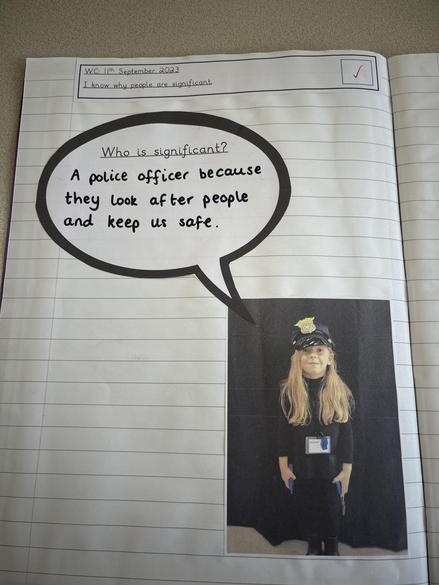 WC 11th September 2023
I know why people are significant
Who is significant?
A police officer because
they look after people
and keep us safe.